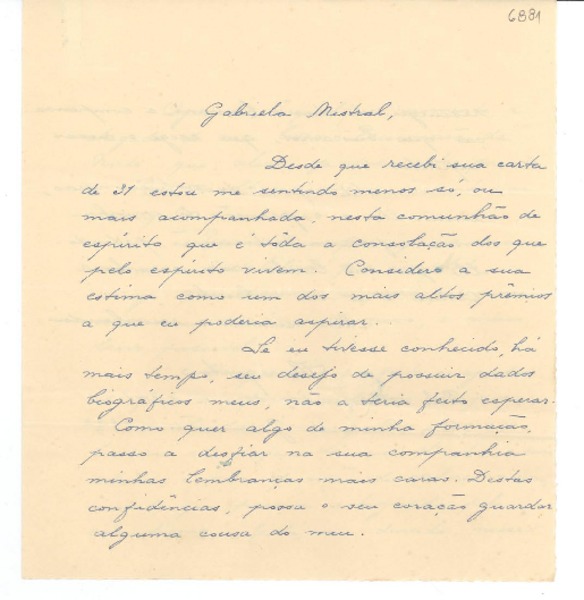 6881
Gabriela Mistral,
Desde que recebi sua carta
de 31 estou me sentindo menos só, ou
mais acompanhada, nesta comunhão de
espírito que é tôda a consolação dos que
pelo espírito vivem. Considero a sua
estima como um dos mais altos prêmios
a que eu poderia aspirar..
Se eu tivesse conhecido, há
mais tempo, seu desejo de possuir dados
biográficos meus, não a teria feito esperar.
Como quer algo de minha formação,
passo a desfiar na sua companhia
minhas lembranças mais caras. Destas
confidências, possa o seu coração guardar
alguma cousa do meu.